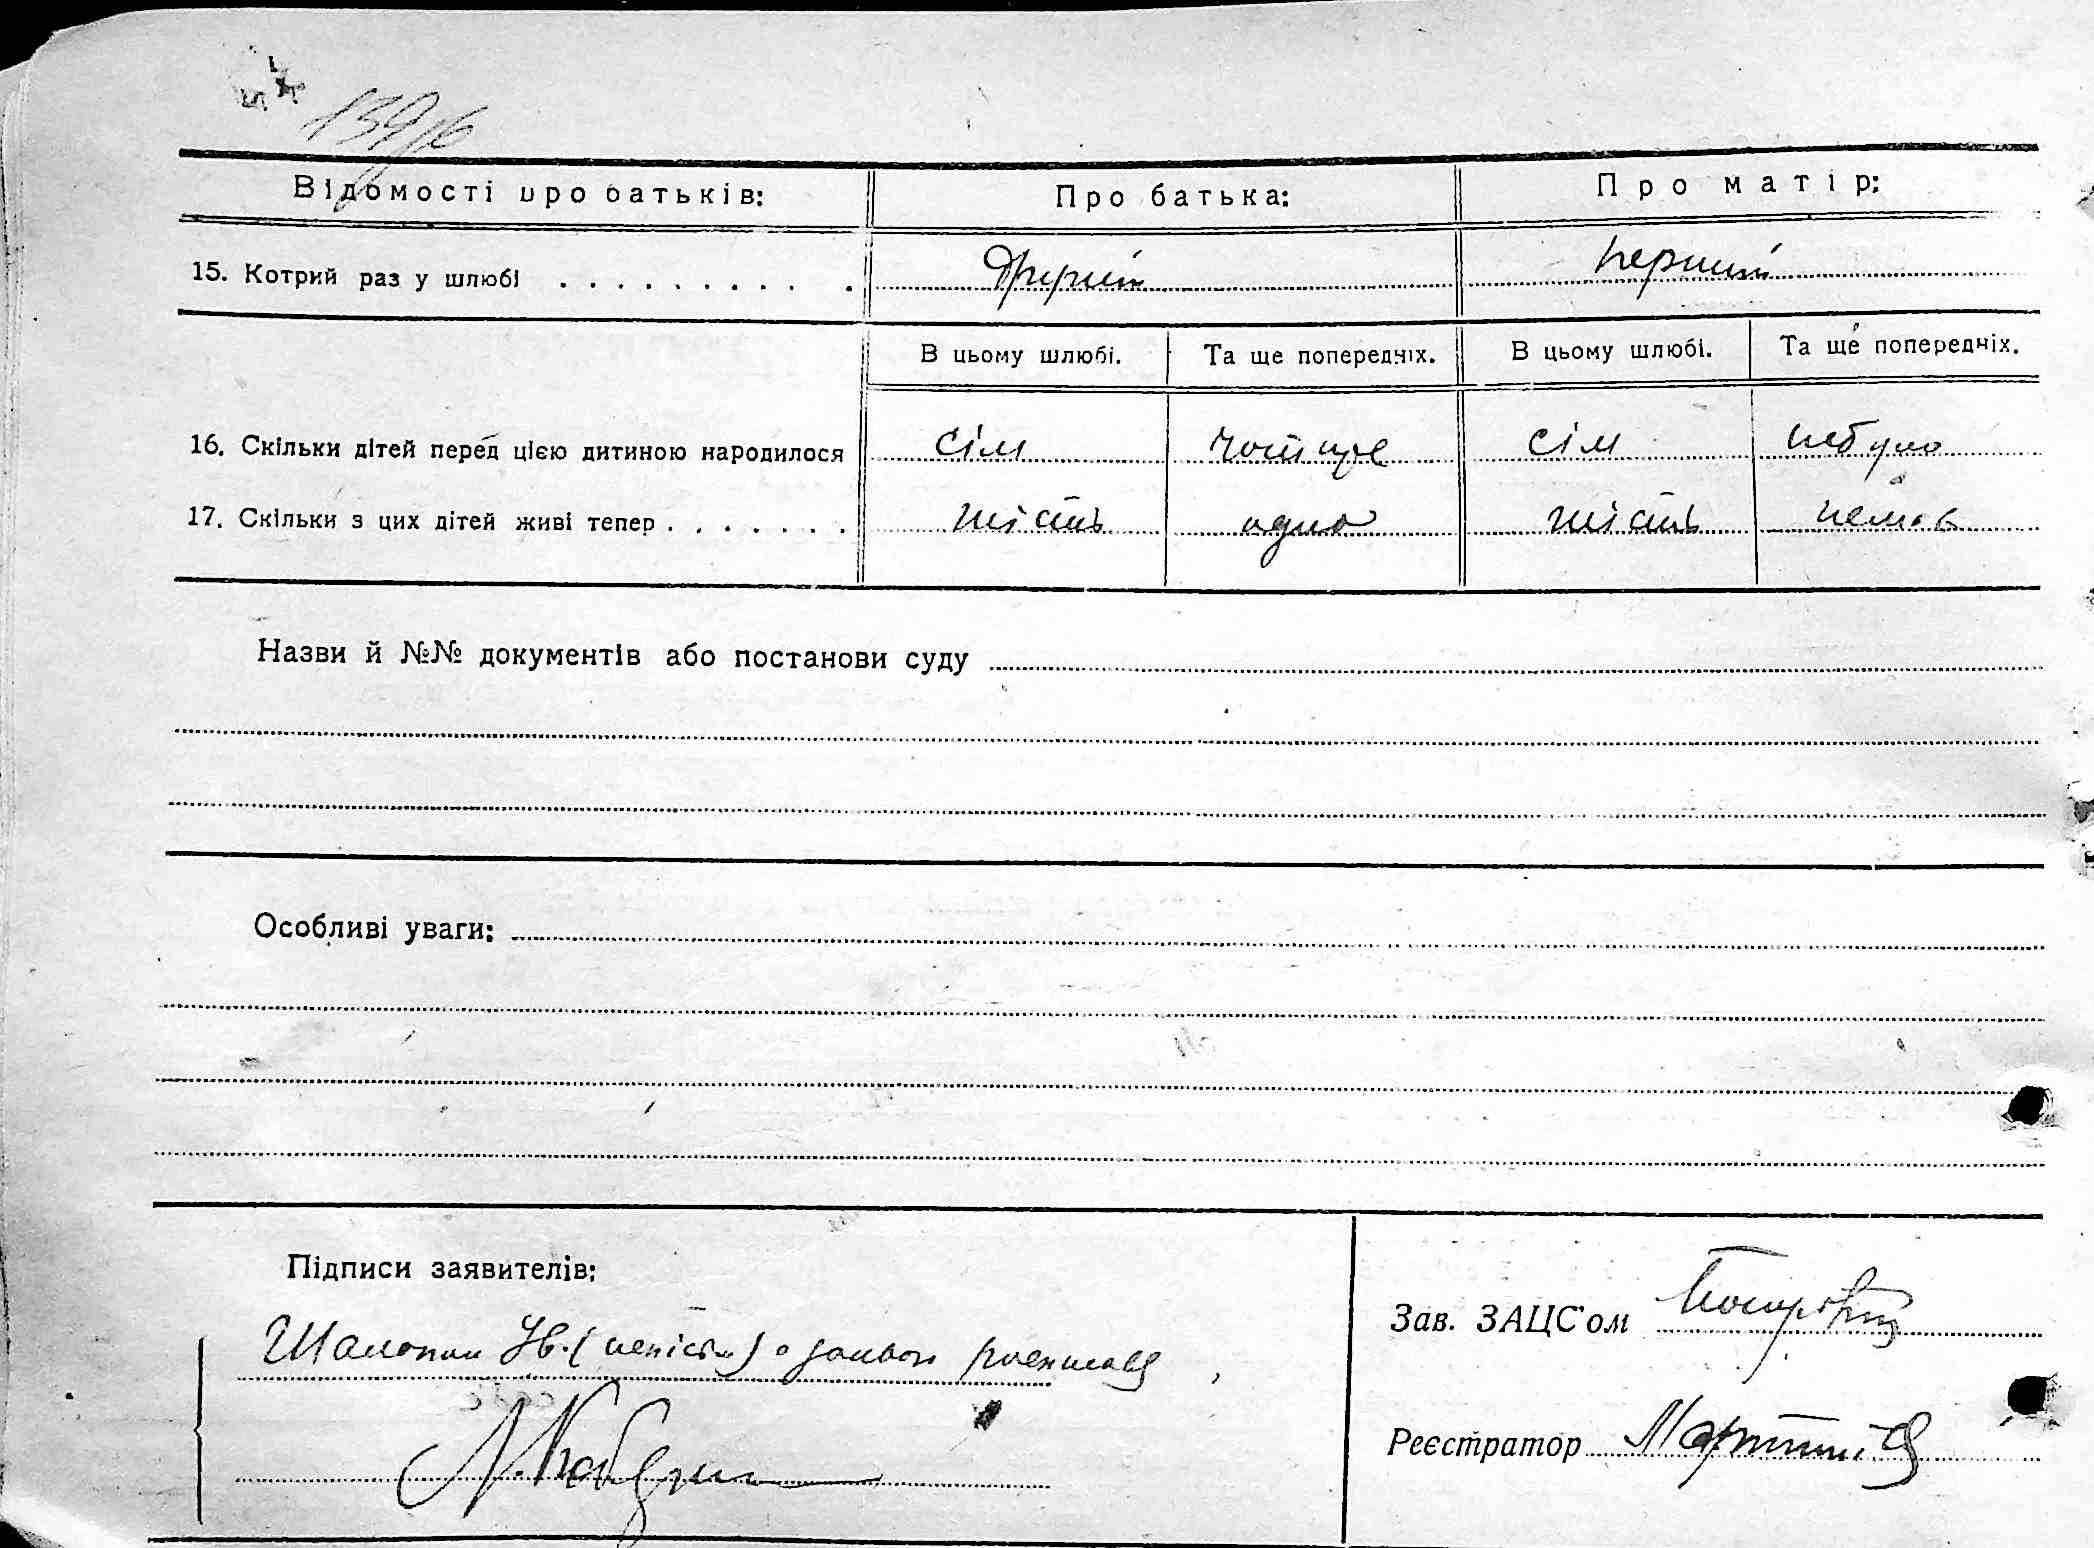 Відомості про батьків: Про батька: Про матір:
15. Котрий раз у шлюбі . . . . . . . . . . Другий перший
В цьому шлюбі. Та ще попередніх. В цьому шлюбі. Та ще попередніх.
16. Скільки дітей перед цією дитиною народилося сім чотире сім небуло
17. Скільки з цих дітей живі тепер . . . . . . . шість одно шість немає
Назви й №№ документів або постанови суду
Особливі уваги:
Підписи заявителів:
Зав. ЗАЦС'ом
Шалопан Ів. (неписм) за нього росписався
Реєстратор